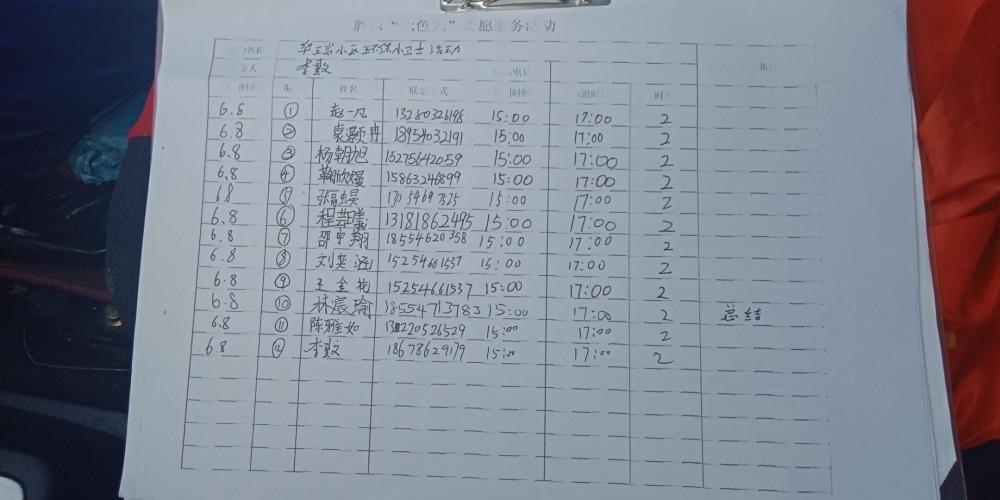 志愿服务活动
名称 华玉岩小区环保小卫士活动
人 李毅 电话 备注
时间 姓名 联系方式 时间 时间 时长
6.8 ① 赵一凡 13280326196 15:00 17:00 2
6.8 ② 袁灏冉 18954032191 15:00 17:00 2
6.8 ③ 杨朝旭 15275642059 15:00 17:00 2
6.8 ④ 鞠欣煜 15863246899 15:00 17:00 2
6.8 15:00 17:00 2
6.8 ⑥ 程梦曦 13181862495 15:00 17:00 2
6.8 ⑦ 邵甲翔 18554620358 15:00 17:00 2
6.8 ⑧ 刘奕涵 15254661537 15:00 17:00 2
6.8 ⑨ 王金花 15254661537 15:00 17:00 2
6.8 ⑩ 林宸瑜 18554713783 15:00 17:00 2 总结
6.8 ⑪ 陈雅如 15:00 17:00 2
6.8 ⑫ 李毅 18678629179 15:00 17:00 2